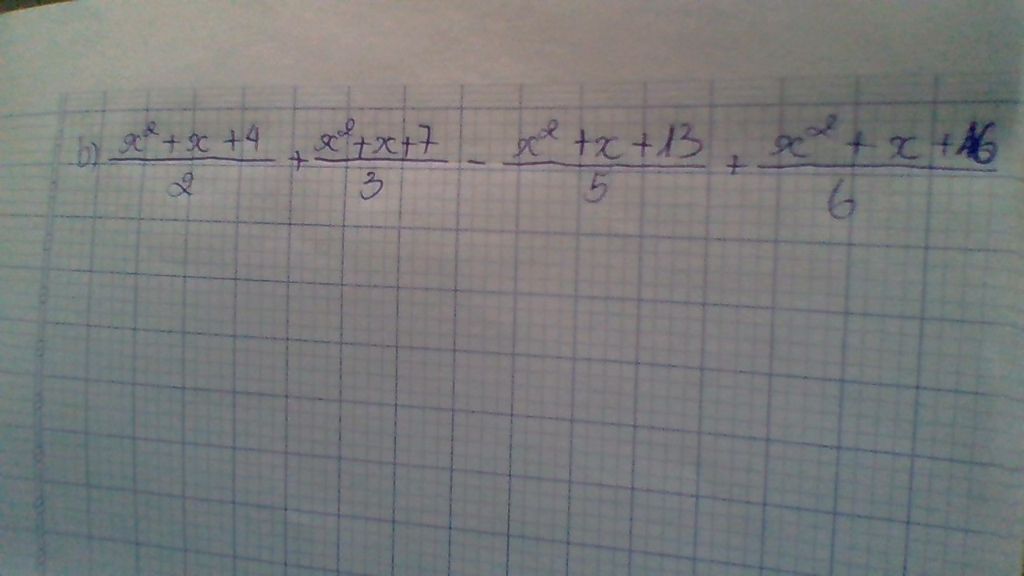 b) (x² + x + 4)/2 + (x² + x + 7)/3 − (x² + x + 13)/5 + (x² + x + 16)/6